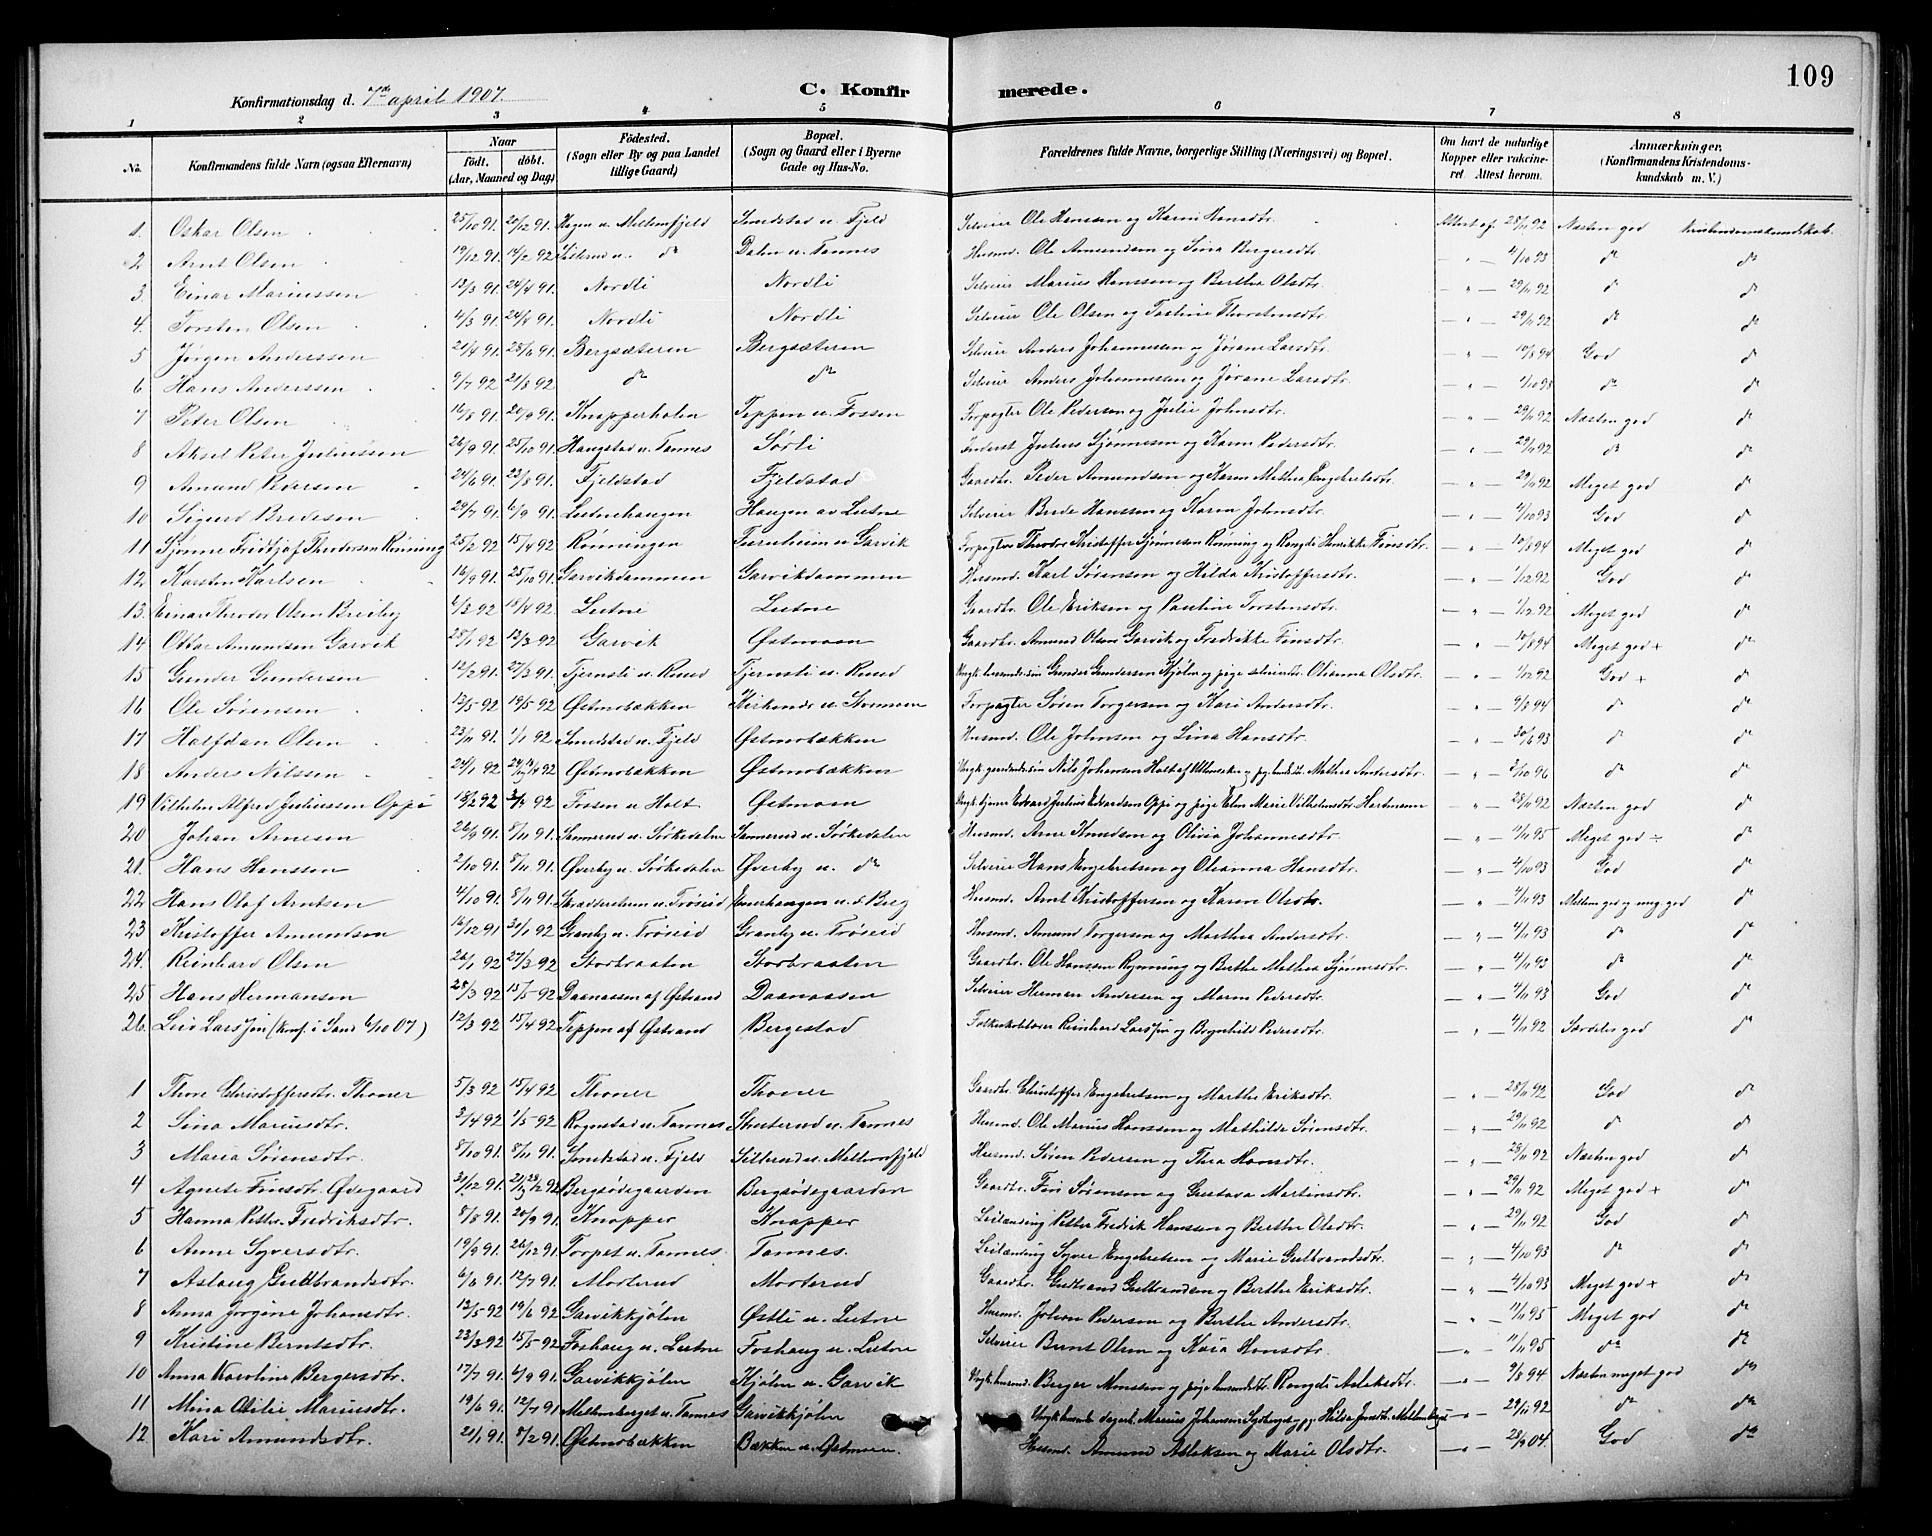 109
Konfirmationsdag d. 7de april 1907. C. Konfir merede.
1 2 3 4 5 6 7 8
No. Konfirmandens fulde Navn (ogsaa Efternavn) Naar født. døbt. (Aar, Maaned og Dag) Fødested. (Sogn eller By og paa Landet tillige Gaard) Bopæl. (Sogn og Gaard eller i Byerne Gade og Hus-No. Forældrenes fulde Navne, borgerlige Stilling (Næringsvei) og Bopæl. Om havt de naturlige Kopper eller vakcineret. Attest herom. Anmærkninger. (Konfirmandens Kristendomskundskab m. V.)
1. Oskar Olsen 25/10 91. 20/12 91. Hagen u. Mellemfjeld Smedstad u. Fjeld Selveier Ole Hanssen og Karen Hansdtr. Attest af 28/11 92 Næsten god Kristendomskundskab.
2 Arnt Olsen 19/12 91. 14/2 92 Sillerud u. do Dalen u. Tannes Husmd. Ole Amundsen og Lina Bergersdtr. — " — 4/10 93 do do
3. Einar Mariussen 12/3 91. 24/4 91. Nordli Nordli Selveier Marius Hanssen og Berthe Olsdtr. — " — 29/11 92 do do
4. Torsten Olsen 4/3 91. 24/4 91. Nordli Nordli Selveier Ole Olsen og Pauline Thorstensdtr. — " — 29/11 92 do do
5 Jørgen Anderssen 21/4 91. 28/6 91. Bergsæteren Bergsæteren Selveier Anders Johannessen og Jørane Larsdtr. — " — 10/8 94 God do
6 Hans Anderssen 9/7 92 21/8 92 do do Selveier Anders Johannessen og Jørane Larsdtr. — " — 1/10 98 do do
7 Peter Olsen 16/8 91. 20/9 91. Knapperholen Teppen u. Fossen Forpagter Ole Pedersen og Julie Johnsdtr. — " — 29/11 92 Næsten god do
8 Aksel Peter Juliussen 26/9 91. 25/10 91. Haugstad u. Tannes Sørli Inderst Julius Sjønnesen og Karen Pedersdtr. — " — 29/11 92 do do
9 Amund Pedersen 24/6 91. 23/8 91. Fjeldstad Fjeldstad Gaardbr. Peder Amundsen og Karen Mathea Engebretsdtr. — " — 29/11 92 Meget god do
10 Sigurd Bredesen 29/7 91. 6/9 91. Lutnehaugen Haugen av Lutne Selveier Brede Hanssen og Karen Johnsdtr. — " — 4/10 93 God do
11 Sjønne Fridtjof Theodorsen Rønning 25/2 92 15/4 92 Rønningen Turnheim u. Garvik Forpagter Theodor Kristoffer Sjønnesen Rønning og Rangdi Henrikke Finsdtr. — " — 10/8 94 Meget god do
12 Karsten Karlsen 16/9 91. 25/10 91. Garvikdammen Garvikdammen Husmd. Karl Sørensen og Hilda Kristoffersdtr. — " — 1/12 92 God do
13. Einar Theodor Olsen Breiby 6/3 92 18/4 92 Lutne Lutne Gaardbr. Ole Eriksen og Pauline Torstensdtr. — " — 1/12 92 Meget god do
14 Ottar Amundsen Garvik 28/1 92 13/3 92 Garvik Østmoen Gaardbr. Amund Olsen Garvik og Fredrikke Finsdtr. — " — 10/8 94 Meget god + do
15 Gunder Gundersen 12/2 91. 27/3 91. Tjernsli u. Rused Tjernsli u. Rused Ungk. husmandssøn Gunder Gundersen Kjølen og pige selveierdtr. Olianna Olsdtr. — " — 1/12 92 God + do
16 Ole Sørensen 13/5 92 19/5 92 Østmobækken Kirkenær u. Strømmen Forpagter Søren Torgersen og Kari Andersdtr. — " — 9/8 94 do do
17 Halfdan Olsen 23/11 91. 1/1 92 Smedstad u. Fjeld Østmobækken Husmd. Ole Johnsen og Lina Hansdtr. — " — 30/6 93 do do
18 Anders Nilssen 24/1 92 24/4 92 Østmobækken Østmobækken Ungk. gaardmandssøn Nils Johansen Holt af Ullensaker og pige husmdt. Mathea Andersdtr. — " — 3/10 96 do do
19 Vilhelm Alfred Juliussen Oppi 18/2 92 3/4 92 Fossen u. Holt Østmoen Ungk. tjener Edvard Julius Edvardsen Oppi og pige Elen Marie Vilhelmsdtr Hartmann — " — 28/11 92 Næsten god do
20 Johan Arnesen 26/9 91. 8/11 91. Sannerud u. Sørkedalen Sannerud u. Sørkedalen Husmd. Arne Knudsen og Olivia Johannesdtr. — " — 11/11 95 Meget god ÷ do
21. Hans Hanssen 2/10 91. 8/11 91. Øverby u. Sørkedalen Øverby u. do Selveier Hans Engebretsen og Oleanna Hansdtr. — " — 4/10 93 God do
22 Hans Olaf Arntsen 4/10 91. 8/11 91. u. Frøseid Husmd. Arnt Kristoffersen og Karen Olsdtr. — " — 4/11 93 Mellem god og meg. god do
23 Kristoffer Amundsen 16/12 91 31/1 92 Granby u. Frøseid Granby u. Frøseid Husmd. Amund Torgersen og Marthea Andersdtr. — " — 4/11 93 do do
24. Reinhard Olsen 26/1 92 27/3 92 Storbraaten Storbraaten Gaardbr. Ole Hanssen Rønning og Berthe Mathea Sjønnesdtr. — " — 4/11 93 do do
25 Hans Hermansen 28/3 92 15/5 92 Daanaasen af Østrand Daanaasen Selveier Herman Andersen og Maren Pedersdtr. — " — 4/11 93 God do
26. Leif Larssen (konf. i Sand 6/10 07) 12/3 92 15/4 92 Teppen af Østrand Bergestad Folkeskolelærer Reinhard Larssen og Brynhild Pedersdtr. — " — 4/11 92 Særdeles god do
1 Thore Christoffersdtr. Thoner 5/3 92 15/4 92 Thoner Thoner Gaardbr. Christoffer Engebretsen og Marthe Eriksdtr. — " — 28/11 92 God do
2 Lina Mariusdtr. 3/4 92 1/5 92 Rognstad u. Tannes Stuterud u. Tannes Husmd. Ole Marius Hanssen og Mathilde Sørensdtr. — " — 29/11 92 do do
3 Maria Sørensdtr. 8/10 91. 8/11 91. Smedstad u. Fjeld Sillerud u. Mellemfjeld Husmd. Søren Pedersen og Thea Hansdtr. — " — 29/11 92 Næsten god do
4 Agnete Finsdtr. Ødegaard 3/12 91. 28/2 92 Bergsødegaarden Bergsødegaarden Gaardbr. Fin Sørensen og Gustava Martinsdtr. — " — 29/11 92 Meget god + do
5 Hanna Petter-Fredriksdtr. 8/8 91. 20/9 91. Knapper Knapper Leilænding Petter Fredrik Hanssen og Berthe Olsdtr. — " — 29/11 92 God do
6 Anne Syversdtr. 19/9 91. 26/12 91. Torpet u. Tannes. Tannes. Leilænding Syver Engebretsen og Marie Gulbrandsdtr. — " — 4/10 93 do do
7 Aslaug Guldbrandsdtr. 6/6 91. 12/7 91. Morterud Morterud Gaardbr. Gulbrand Gulbrandsen og Berthe Eriksdtr. — " — 4/10 93 Meget god + do
8 Anna Jørgine Johansdtr. 13/5 92 19/6 92 Garvikkjølen Østli u. Lutne Husmd. Johan Pedersen og Berthe Andersdtr. — " — 11/11 95 Meget god do
9 Kristine Berntsdtr. 23/3 92 15/5 92 Foshaug u. Lutne Foshaug u. Lutne Selveier Bernt Olsen og Kaia Hansdtr. — " — 11/11 95 do do
10 Anna Karoline Bergersdtr. 17/7 91. 6/9 91. Garvikkjølen Kjølen u. Garvik Ungk. husmd. Berger Monssen og pige husmdtr. Rangdi Aslaksdtr. — " — 9/8 94 Næsten meget god do
11 Mina Otilie Mariusdtr. 19/6 91. 12/7 91 Mellemberget u. Tannes Garvikkjølen Ungk. husmds. dagarb. Marius Johansen Sydberget og pg. Hilda Jensdtr. Mellemberget — " — 29/11 92 do do
12 Kari Amundsdtr. 21/1 91. 8/2 91. Østmobækken Bækken u. Østmoen. Husmd. Amund Aslaksen og Marie Olsdtr. — " — 28/9 04. God do